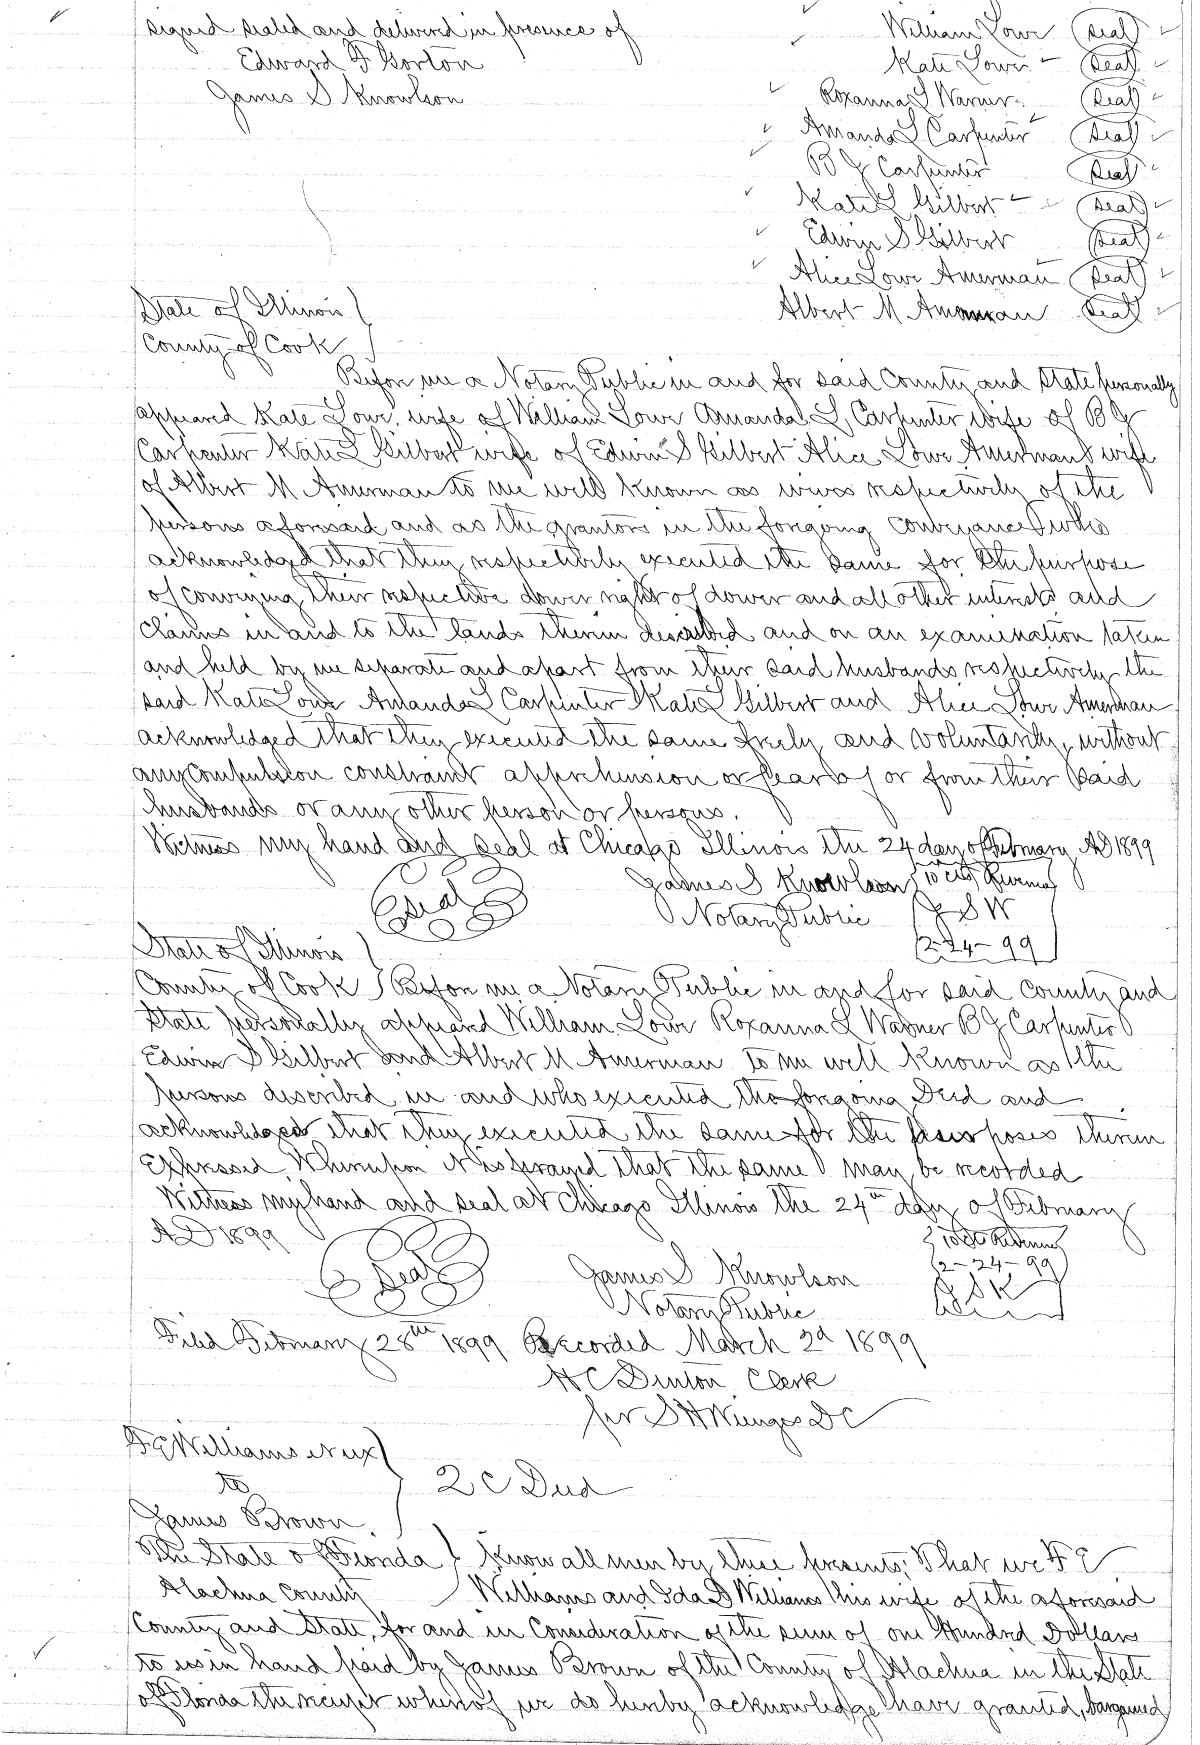 signed sealed and delivered in presence of
Edward F Gorton
James S Knowlson
William Lowe Seal
Kate Lowe Seal
Roxanna L Warner Seal
Amanda L Carpenter Seal
B G Carpenter Seal
Kate L Gilbert Seal
Edwin S Gilbert Seal
Alice Lowe Amerman Seal
Albert M Amerman Seal
State of Illinois }
County of Cook }
Before me a Notary Public in and for said County and State personally
appeared Kate Lowe, wife of William Lowe Amanda L, Carpenter wife of B G
Carpenter Kate L Gilbert wife of Edwin S Gilbert Alice Lowe Amerman wife
of Albert M Amerman to me well known as wives respectively of the
persons aforesaid and as the grantors in the foregoing conveyance who
acknowledged that they respectively executed the same for the purpose
of conveying their respective dower right of dower and all other interests and
claims in and to the lands therein described and on an examination taken
and held by me separate and apart from their said husbands respectively the
said Kate Lowe Amanda L Carpenter Kate L Gilbert and Alice Lowe Amerman
acknowledged that they executed the same freely and voluntarily, without
any compulsion constraint apprehension or fear of or from their said
husbands or any other person or persons.
Witness my hand and seal at Chicago Illinois the 24 day of February AD 1899
Seal James S Knowlson { 10 cts Revenue
Notary Public J S W
2-24-99 }
State of Illinois }
County of Cook } Before me a Notary Public in and for said County and
State personally appeared William Lowe Roxanna L Warner B G Carpenter
Edwin S Gilbert and Albert M Amerman to me well known as the
persons described in and who executed the foregoing Deed and
acknowledged that they executed the same for the purposes therein
Expressed, Whereupon it is prayed that the same may be recorded
Witness my hand and seal at Chicago Illinois the 24th day of February
AD 1899
Seal James S Knowlson { 10 cts Revenue
2-24-99
Notary Public J S K
Filed February 28th 1899 Recorded March 2d 1899
H C Denton Clerk
per S H Wienges D C
F E Williams et ux }
to } 2 C Deed
James Brown. }
The State of Florida } Know all men by these presents; That we F E
Alachua County } Williams and Ida D Williams his wife of the aforesaid
County and State, for and in Consideration of the sum of one Hundred Dollars
to us in hand paid by James Brown of the County of Alachua in the State
of Florida the receipt whereof we do hereby acknowledge have granted, bargained